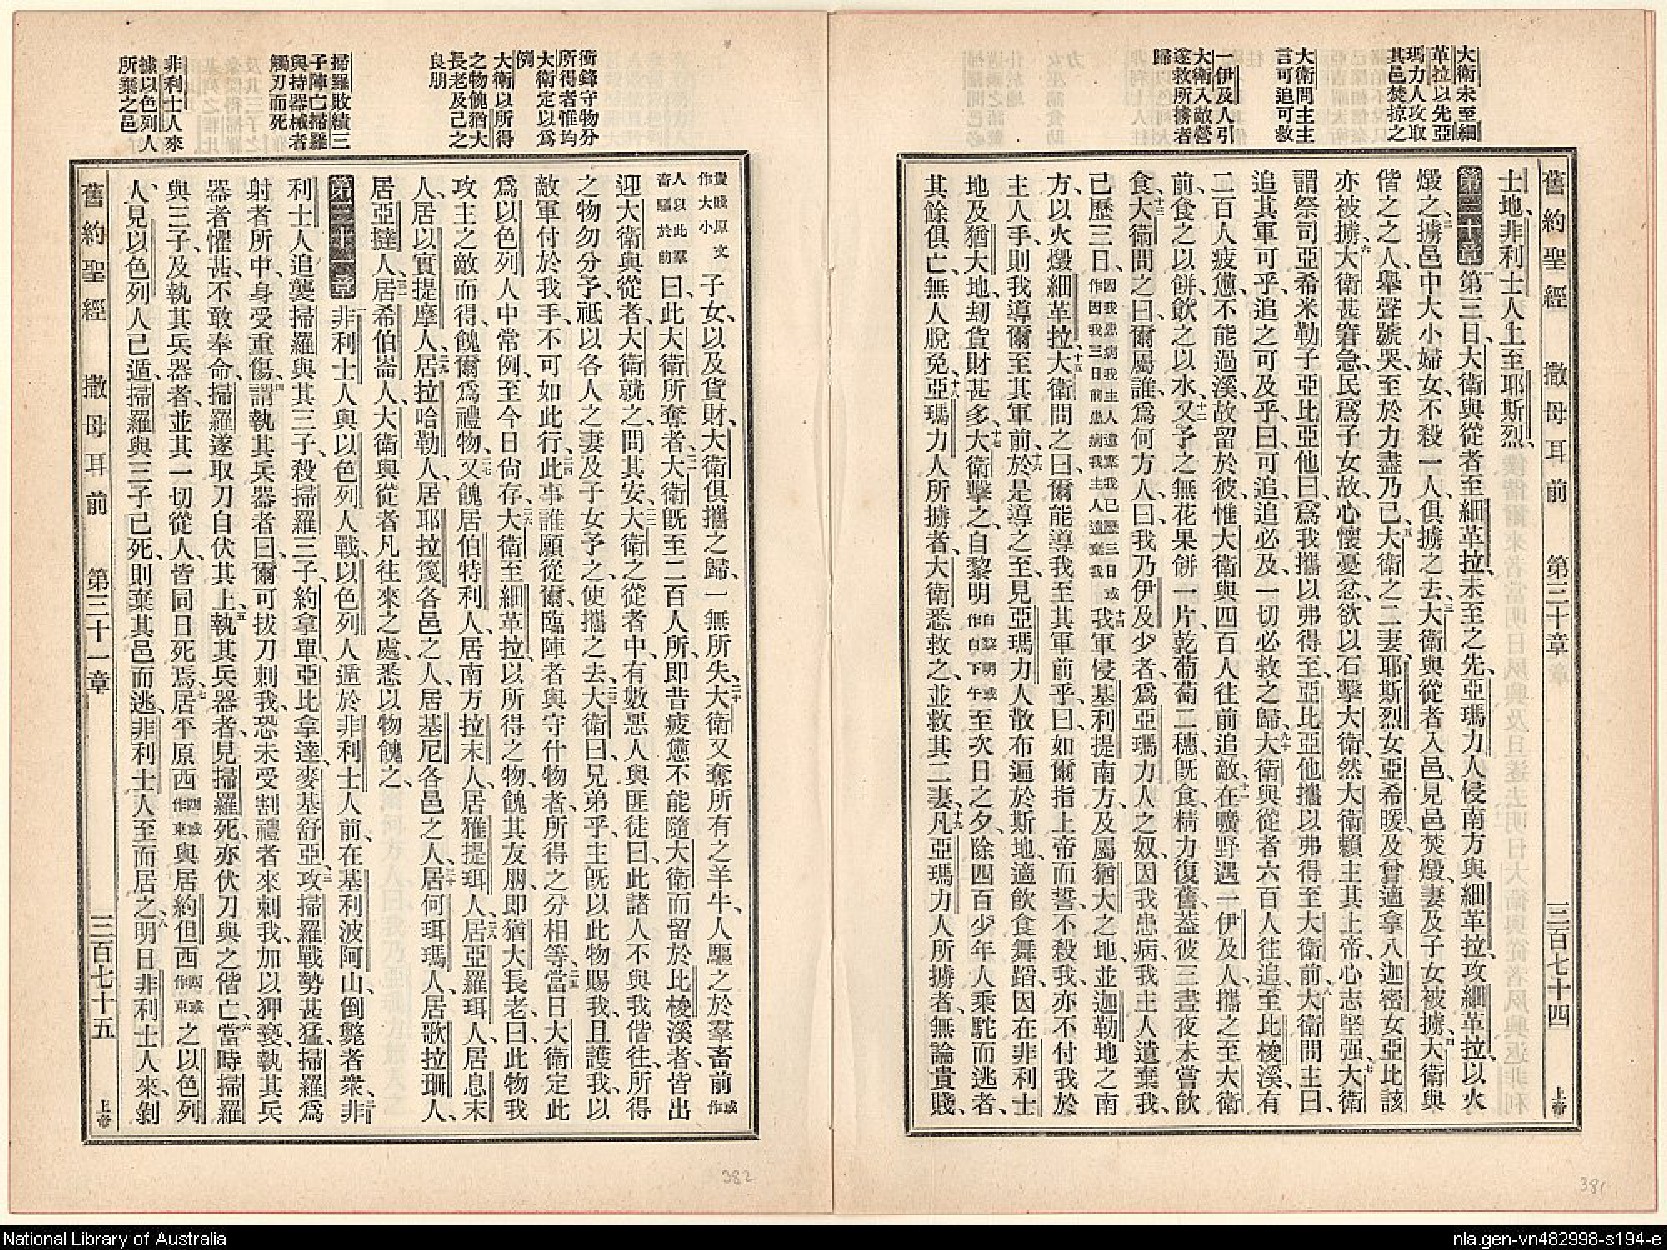 舊約聖經　撒母耳前　第三十章　三百七十四　上帝
大衛未至細
革拉以先亞
瑪力人攻取
其邑焚掠之
大衛問主主
言可追可救
一伊及人引
大衛入敵營
遂救所擄者
歸
士地、非利士人上至耶斯烈、
第三十章 一第三日、大衛與從者至細革拉、未至之先、亞瑪力人侵南方與細革拉、攻細革拉、以火
燬之、二擄邑中大小婦女、不殺一人、俱擄之去、三大衛與從者入邑、見邑焚燬、妻及子女被擄、四大衛與
偕之之人、舉聲號哭、至於力盡乃已、五大衛之二妻、耶斯烈女亞希暖、及曾適拿八迦密女亞比該
亦被擄、六大衛甚窘急、民爲子女故、心懷憂忿、欲以石擊大衛、然大衛賴主其上帝、心志堅强、七大衛
謂祭司亞希米勒子亞比亞他曰、爲我攜以弗得至、亞比亞他攜以弗得至大衛前、八大衛問主曰、
追其軍可乎、追之可及乎、曰、可追、追必及、一切必救之歸、九大衛與從者六百人往追、至比梭溪、有
二百人疲憊、不能過溪、故留於彼、惟大衛與四百人往前追敵、十一在曠野遇一伊及人、攜之至大衛
前、食之以餅、飲之以水、十二又予之無花果餅一片、乾葡萄二穗、旣食、精力復舊、蓋彼三晝夜未嘗飲
食、十三大衛問之曰、爾屬誰、爲何方人、曰、我乃伊及少者、爲亞瑪力人之奴、因我患病、我主人遺棄我、
已歷三日、因我患病我主人遺棄我已歷三日或作因我三日前患病我主人遺棄我 十四我軍侵基利提南方、及屬猶大之地、並迦勒地之南
方、以火燬細革拉、十五大衛問之曰、爾能導我至其軍前乎、曰、如爾指上帝而誓、不殺我、亦不付我於
主人手、則我導爾至其軍前、十六於是導之至、見亞瑪力人散布遍於斯地、適飲食舞蹈、因在非利士
地及猶大地、刧貨財甚多、十七大衛擊之、自黎明自黎明或作自下午至次日之夕、除四百少年人乘駝而逃者、
其餘俱亡、無人脫免、十八亞瑪力人所擄者、大衛悉救之、並救其二妻、十九凡亞瑪力人所擄者、無論貴賤、
衝鋒守物分
所得者惟均
大衛定以爲
例
大衛以所得
之物餽猶大
長老及己之
良朋
掃羅敗績三
子陣亡掃羅
與持器械者
觸刃而死
非利士人來
據以色列人
所棄之邑
貴賤原文作大小 子女、以及貨財、大衛俱攜之歸、一無所失、二十大衛又奪所有之羊牛、人驅之於羣畜前、或作
人以此羣畜驅於前 曰、此大衛所奪者、二一大衛旣至二百人所、卽昔疲憊不能隨大衛而留於比梭溪者、皆出
迎大衛與從者、大衛就之、問其安、二二大衛之從者中、有數惡人與匪徒曰、此諸人不與我偕往、所得
之物勿分予、祗以各人之妻及子女予之、使攜之去、二三大衛曰、兄弟乎、主旣以此物賜我、且護我、以
敵軍付於我手、不可如此行、二四此事誰願從爾、臨陣者與守什物者、所得之分相等、二五當日大衛定此
爲以色列人中常例、至今日尙存、二六大衛至細革拉、以所得之物、餽其友朋、卽猶大長老、曰、此物我
攻主之敵而得、餽爾爲禮物、二七又餽居伯特利人、居南方拉末人、居雅提珥人、二八居亞羅珥人、居息末
人、居以實提摩人、二九居拉哈勒人、居耶拉篾各邑之人、居基尼各邑之人、三十居何珥瑪人、居歌拉珊人、
居亞撻人、三一居希伯崙人、大衛與從者凡往來之處、悉以物餽之、
第三十一章 一非利士人與以色列人戰、以色列人遁於非利士人前、在基利波阿山倒斃者衆、二非
利士人追襲掃羅與其三子、殺掃羅三子、約拿單、亞比拿達、麥基舒亞、三攻掃羅戰勢甚猛、掃羅爲
射者所中、身受重傷、四謂執其兵器者曰、爾可拔刀刺我、恐未受割禮者來刺我、加以狎褻、執其兵
器者懼甚、不敢奉命、掃羅遂取刀自伏其上、五執其兵器者、見掃羅死、亦伏刀與之偕亡、六當時掃羅
與三子、及執其兵器者、並其一切從人、皆同日死焉、七居平原西西或作東與居約但西西或作東之以色列
人、見以色列人已遁、掃羅與三子已死、則棄其邑而逃、非利士人至而居之、八明日非利士人來剝
舊約聖經　撒母耳前　第三十一章　三百七十五　上帝
382
381
National Library of Australia
nla.gen-vn482998-s194-e